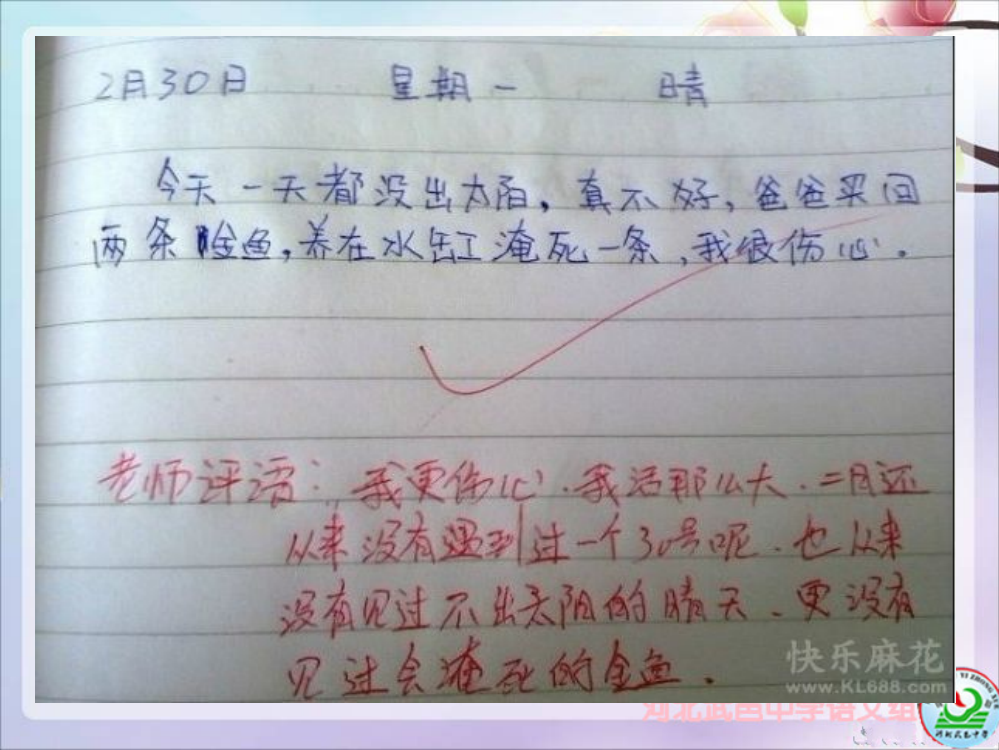 2月30日 星期一 晴
今天一天都没出太阳,真不好,爸爸买回
两条金鱼,养在水缸淹死一条,我很伤心.
老师评语:我更伤心.我活那么大.二月还
从来没有遇到过一个30号呢.也从来
没有见过不出太阳的晴天.更没有
见过会淹死的金鱼.
快乐麻花
www.KL688.com
河北武邑中学语文组
YI ZHONG